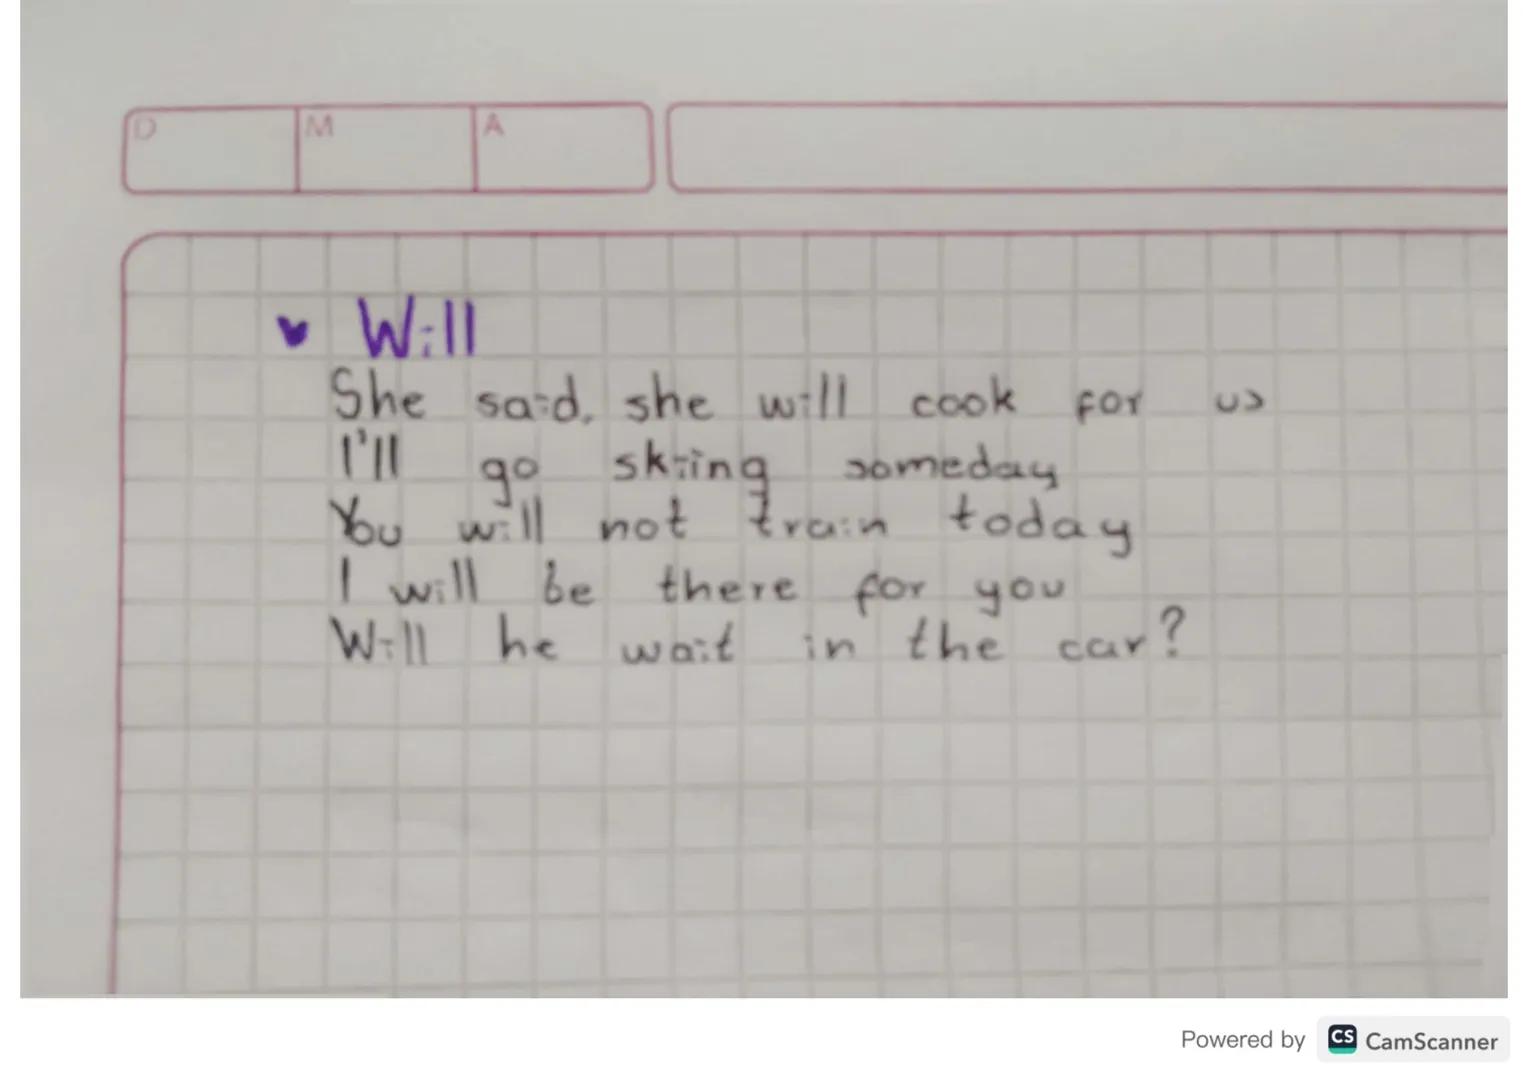 D M A
Will
She said, she will cook for us
I'll go skiing someday
You will not train today
I will be there for you
Will he wait in the car?
Powered by CS CamScanner